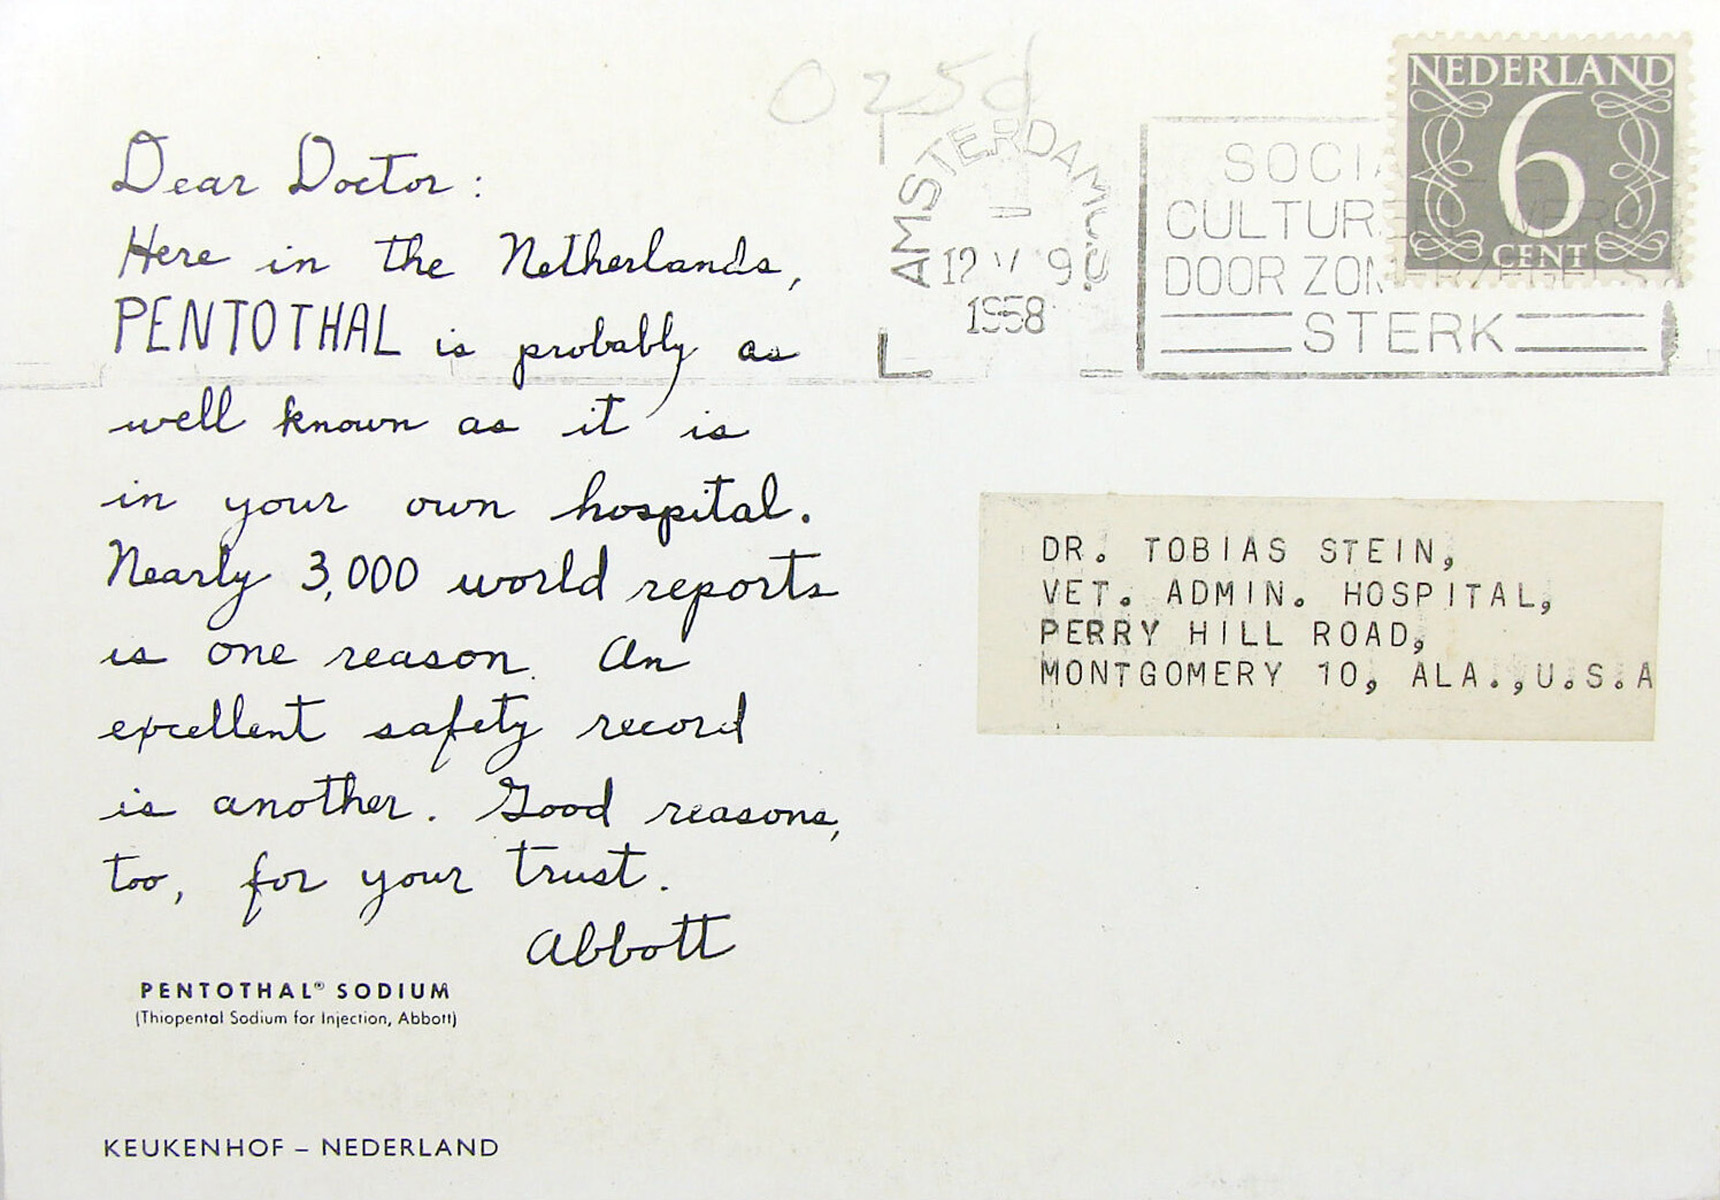 Dear Doctor:
Here in the Netherlands,
PENTOTHAL is probably as
well known as it is
in your own hospital.
Nearly 3,000 world reports
is one reason. An
excellent safety record
is another. Good reasons,
too, for your trust.
Abbott
PENTOTHAL® SODIUM
(Thiopental Sodium for Injection, Abbott)
KEUKENHOF – NEDERLAND
AMSTERDAM
12 V 9
1958
CULTUREEL WERK
DOOR ZOMERZEGELS
STERK
NEDERLAND
6
CENT
DR. TOBIAS STEIN,
VET. ADMIN. HOSPITAL,
PERRY HILL ROAD,
MONTGOMERY 10, ALA.,U.S.A